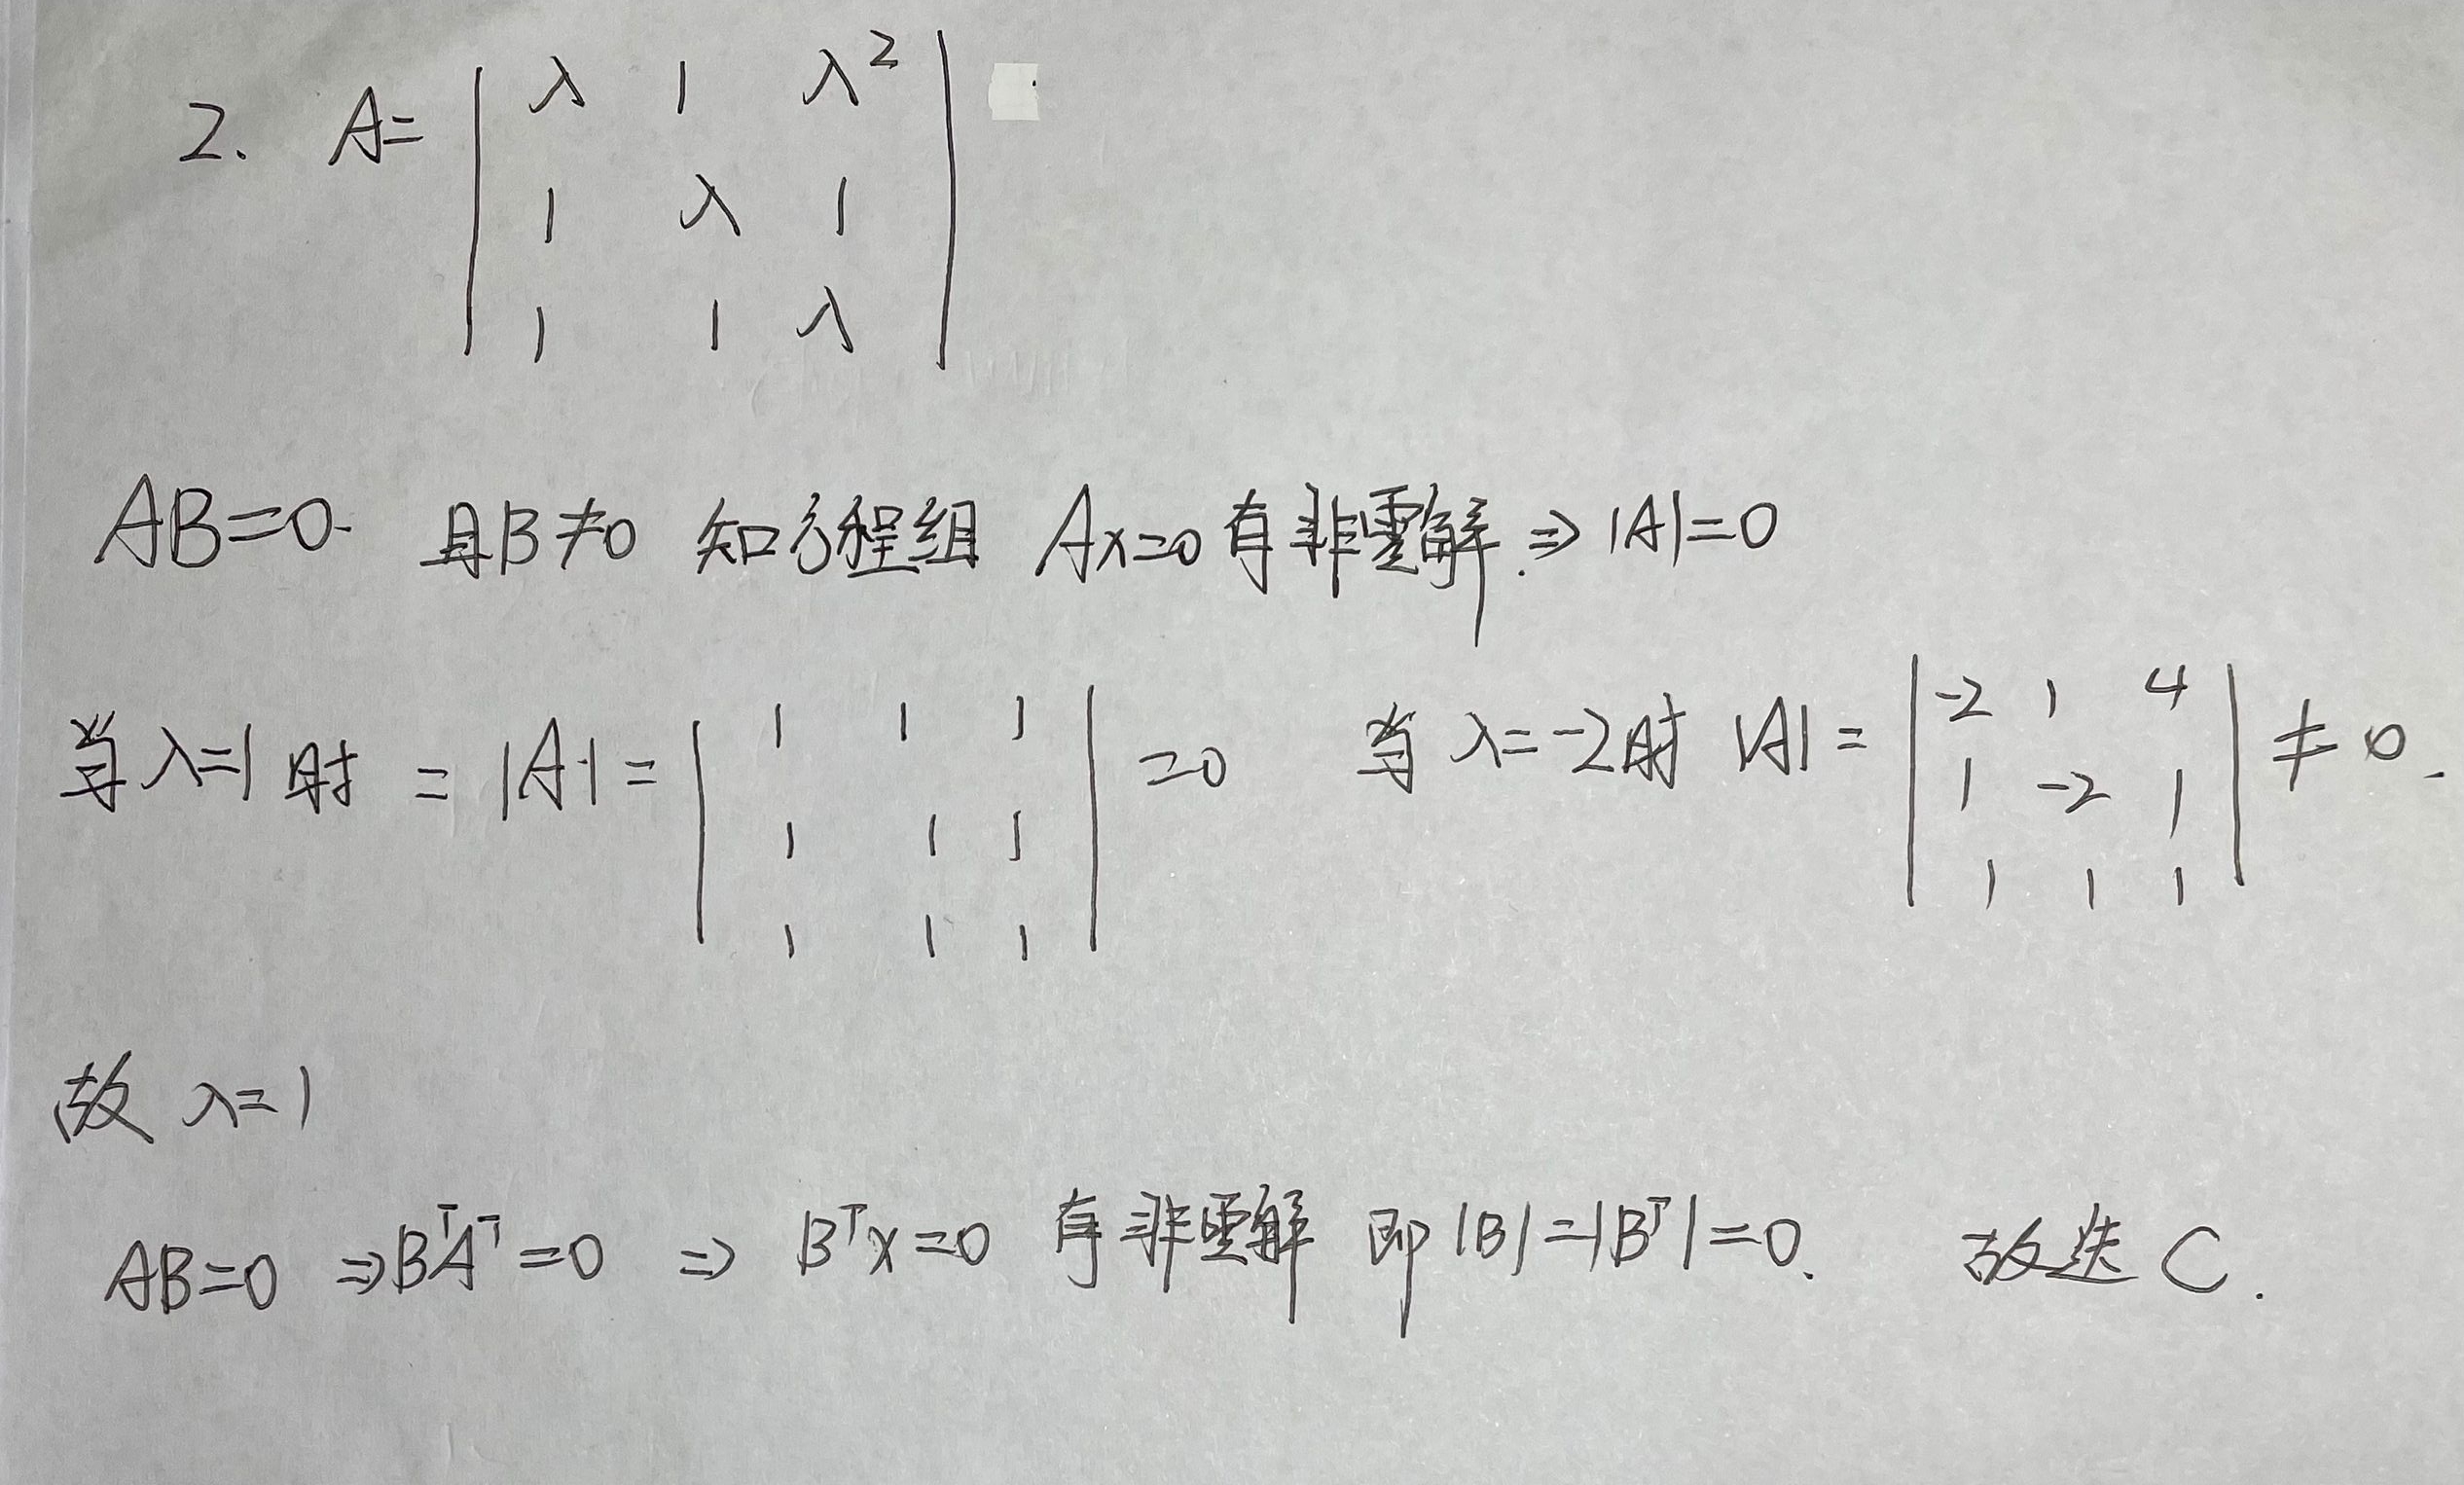 2. A= | λ 1 λ² |
| 1 λ 1 |
| 1 1 λ |
AB=0. 且B≠0 知方程组 Ax=0有非零解.⇒|A|=0
当λ=1时 = |A| = | 1 1 1 | =0 当λ=-2时 |A| = | -2 1 4 | ≠0.
| 1 1 1 | | 1 -2 1 |
| 1 1 1 | | 1 1 1 |
故 λ=1
AB=0 ⇒BᵀAᵀ=0 ⇒ Bᵀx=0 有非零解 即|B|=|Bᵀ|=0. 故选C.